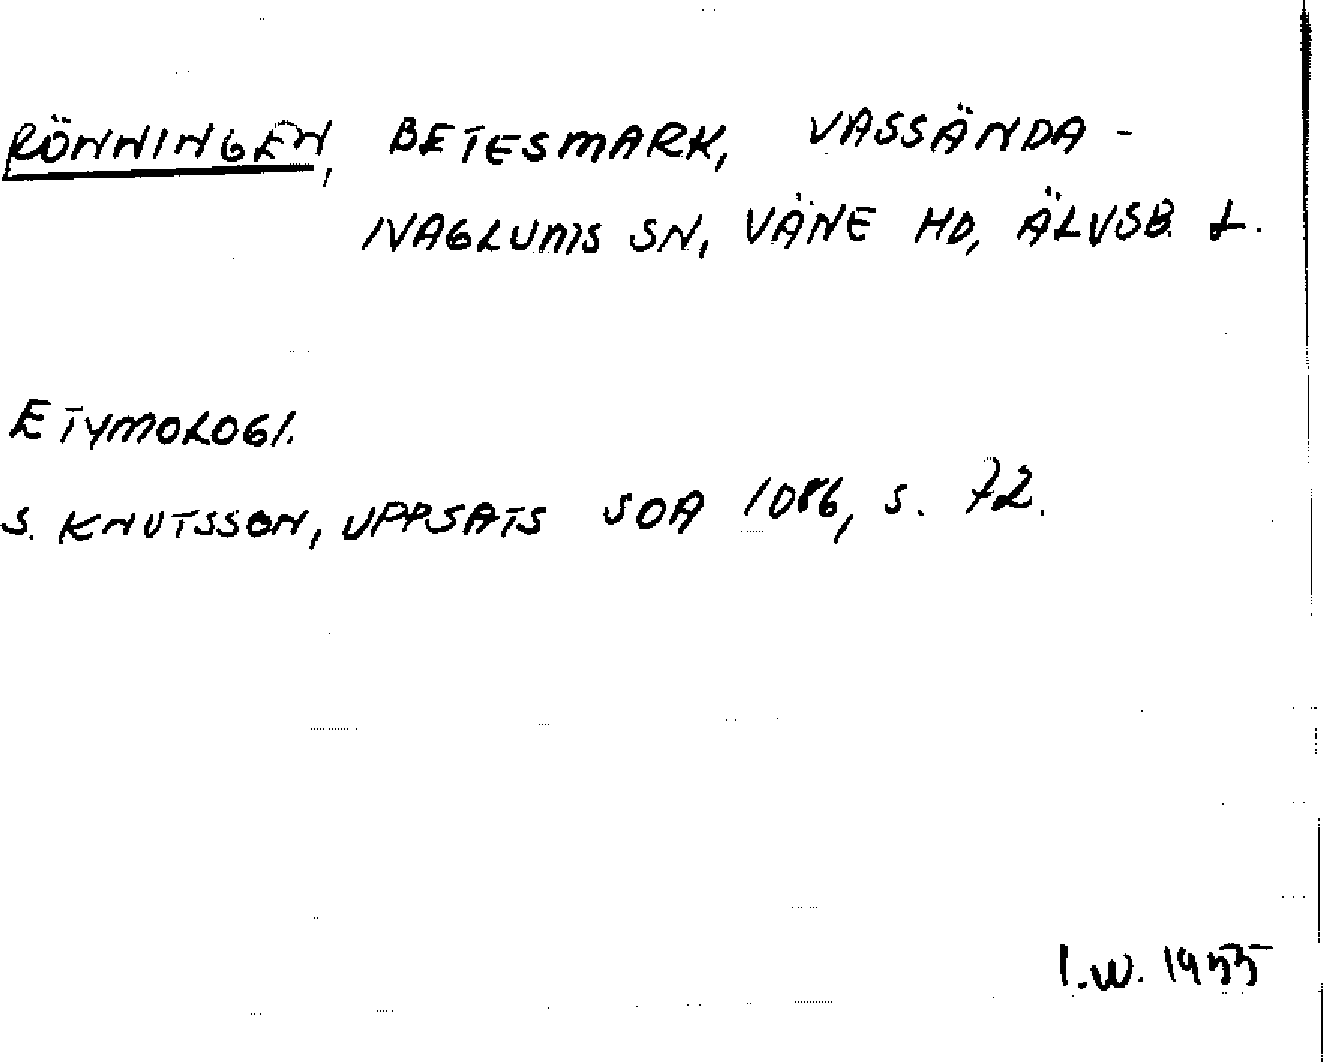 RÖNNINGEN, BETESMARK, VASSÄNDA-
NAGLUMS SN, VÄNE HD, ÄLVSB. L.
ETYMOLOGI.
S. KNUTSSON, UPPSATS SOA 1086, S. 72.
I.W. 1955